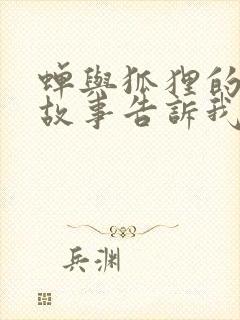 蟬與狐狸的
故事告訴我
兵渊